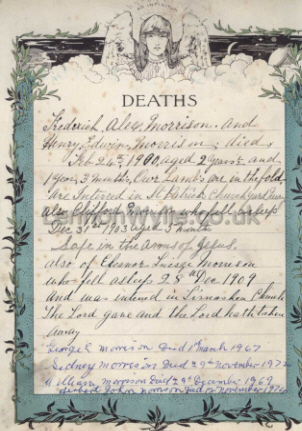 DEATHS
Frederick Alex Morrison. And
Henry Edwin Morrison. died
Feb 24th 1900 aged 2 years and
1 year 3 months. Our Lambs are in the fold
are Interred in St Patricks Churchyard
also Clifford Morrison who fell asleep
Dec 31st 1903 aged 3 months
Safe in the arms of Jesus.
also of Eleanor Morrison
who fell asleep 25th Dec 1909
and was intered in
The Lord gave and the Lord hath taken
away
George Morrison Died 1st March 1967
Sydney Morrison Died 29th November 1972
William Morrison Died December 1969
John Morrison Died November 1976